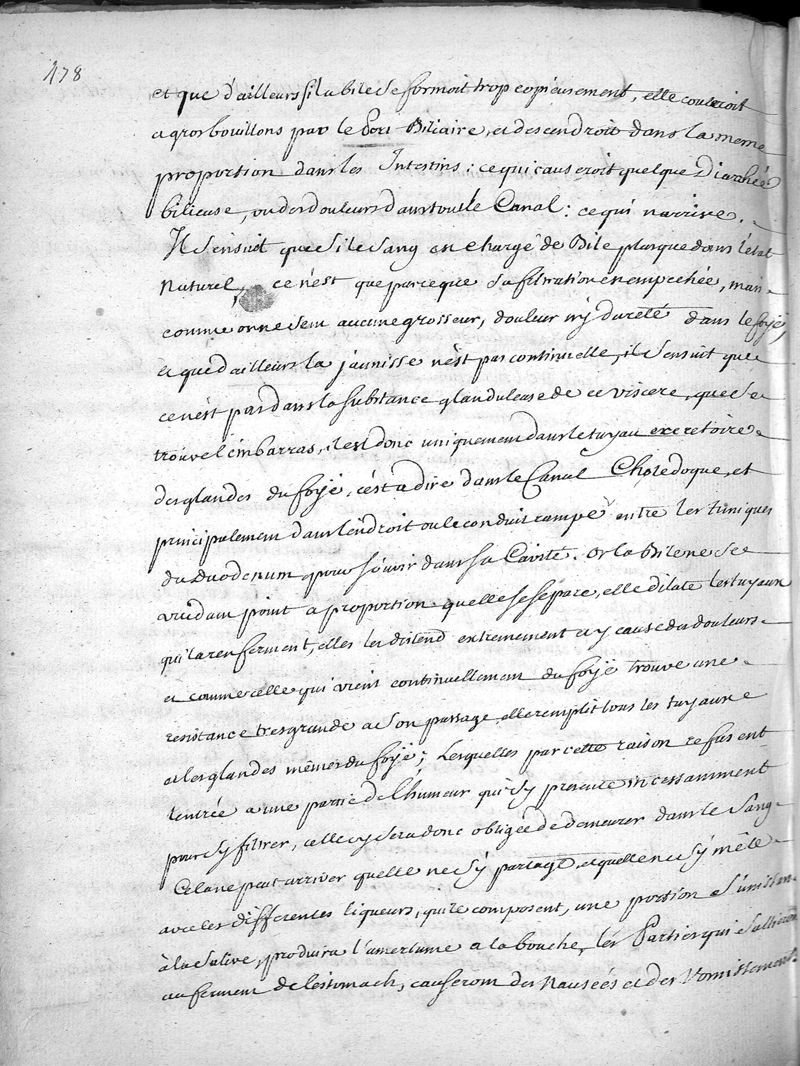 478
et que d'ailleurs si la bile se formoit trop copieusement, elle couleroit
a gros bouillons par le Pore Biliaire, et descendroit dans la meme
proportion dans les Intestins : ce qui causeroit quelque Diarrhée
bilieuse, ou des douleurs dans tout le Canal : ce qui n'arrive.
Il s'ensuit que si le sang est chargé de Bile plus que dans l'état
Naturel, ce n'est que parce que sa filtration en empechée, mais
comme on ne sent aucune grosseur, douleur ny dureté dans le foye,
et que d'ailleurs la jaunisse n'est pas continuelle, il s'ensuit que
ce n'est pas dans la substance glanduleuse de ce viscere, que se
trouve l'embarras, il est donc uniquement dans le tuyau excretoire
des glandes du foye, c'est a dire dans le Canal Choledoque, et
principalement dans l'endroit ou le conduit rampe entre les tuniques
du Duodenum pour s'ouvrir dans sa Cavité. Or la Bile ne se
vuidant point a proportion quelle se separe, elle dilate les tuyaux
qui la renferment, elles les distend extremement et y cause des douleurs
et comme celle qui vient continuellement du foye trouve une
resistance tres grande a son passage elle remplit tous les tuyaux
et les glandes mêmes du foye ; Lesquelles par cette raison refusent
l'entrée a une partie de l'humeur qui s'y presente incessamment
pour s'y filtrer, celle cy sera donc obligée de demeurer dans le sang
Cela ne peut arriver quelle ne s'y partage, et quelle ne s'y mêle
avec les differentes liqueurs, qui le composent, une portion s'unissan
à la salive, produira l'amertume a la bouche, les Parties qui s'allieron
au ferment de l'estomach, causeront des Nausées et des Vomissement.